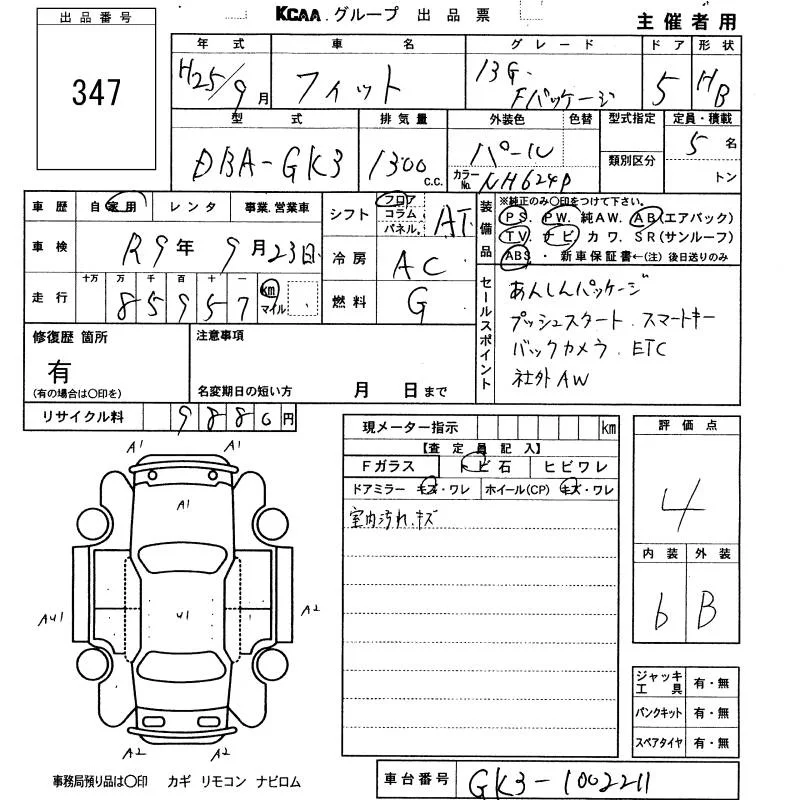 KCAA.グループ 出品票
主催者用
出品番号
347
年式 車名 グレード ドア 形状
H25/9月 フィット 13G. Fパッケージ 5 HB
型式 排気量 外装色 色替 型式指定 定員・積載
DBA-GK3 1300 C.C. パール 類別区分 5名
カラーNo. NH624P トン
車歴 自家用 レンタ 事業.営業車
シフト フロア コラム パネル. AT
装備品
※純正のみ〇印をつけて下さい。
PS. PW. 純AW. AB(エアバック)
TV. ナビ カワ. SR(サンルーフ)
ABS ・ 新車保証書←(注) 後日送りのみ
車検 R9年9月23日
冷房 AC
走行 十万 万 千 百 十 一
85957 km マイル
燃料 G
セールスポイント
あんしんパッケージ
プッシュスタート.スマートキー
バックカメラ. ETC
社外AW
修復歴 箇所
有
(有の場合は〇印を)
注意事項
名変期日の短い方 月 日まで
リサイクル料 9880円
現メーター指示 km
【査定員記入】
Fガラス トビ石 ヒビワレ
ドアミラー キズ・ワレ ホイール(CP) キズ・ワレ
室内汚れ.キズ
評価点
4
内装 外装
6 B
A1 A1
A1
AU1 U1 A2
A2 A2
ジャッキ工具 有・無
パンクキット 有・無
スペアタイヤ 有・無
事務局預り品は〇印 カギ リモコン ナビロム
車台番号 GK3-1002211